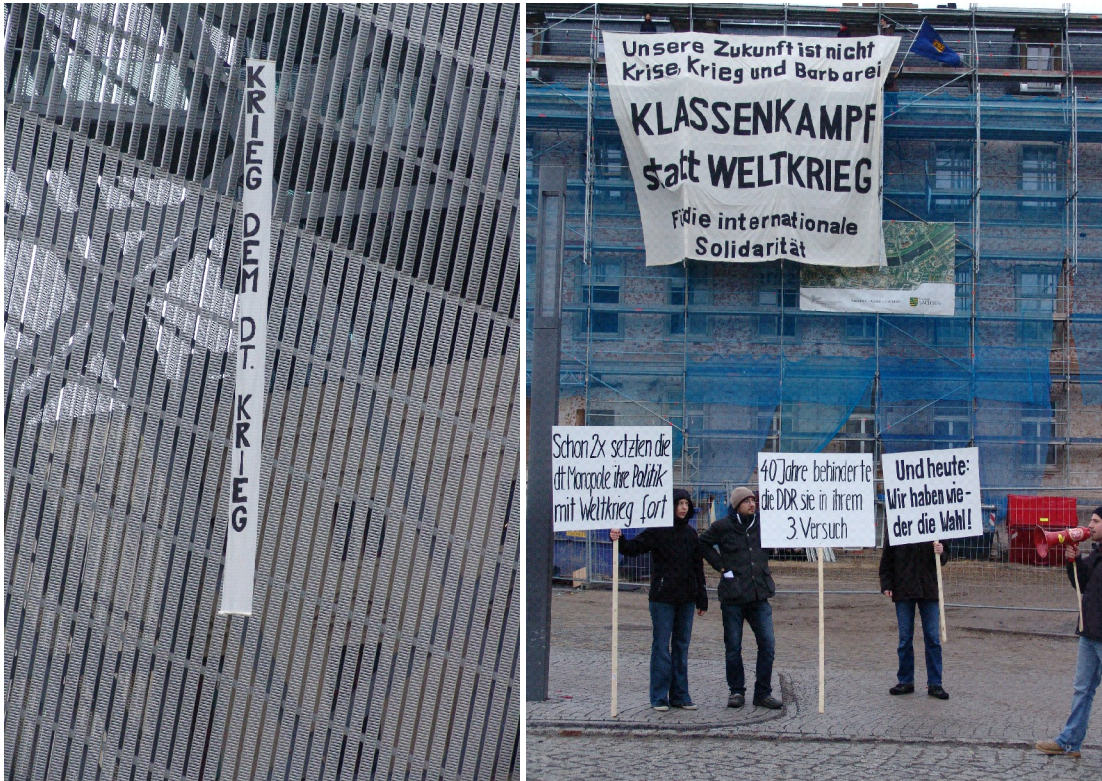 KRIEG DEM DT. KRIEG
Unsere Zukunft ist nicht
Krise, Krieg und Barbarei
KLASSENKAMPF
statt WELTKRIEG
Für die internationale
Solidarität
Schon 2x setzten die
dt Monopole ihre Politik
mit Weltkrieg fort
40 Jahre behinderte
die DDR sie in ihrem
3. Versuch
Und heute:
Wir haben wie-
der die Wahl!